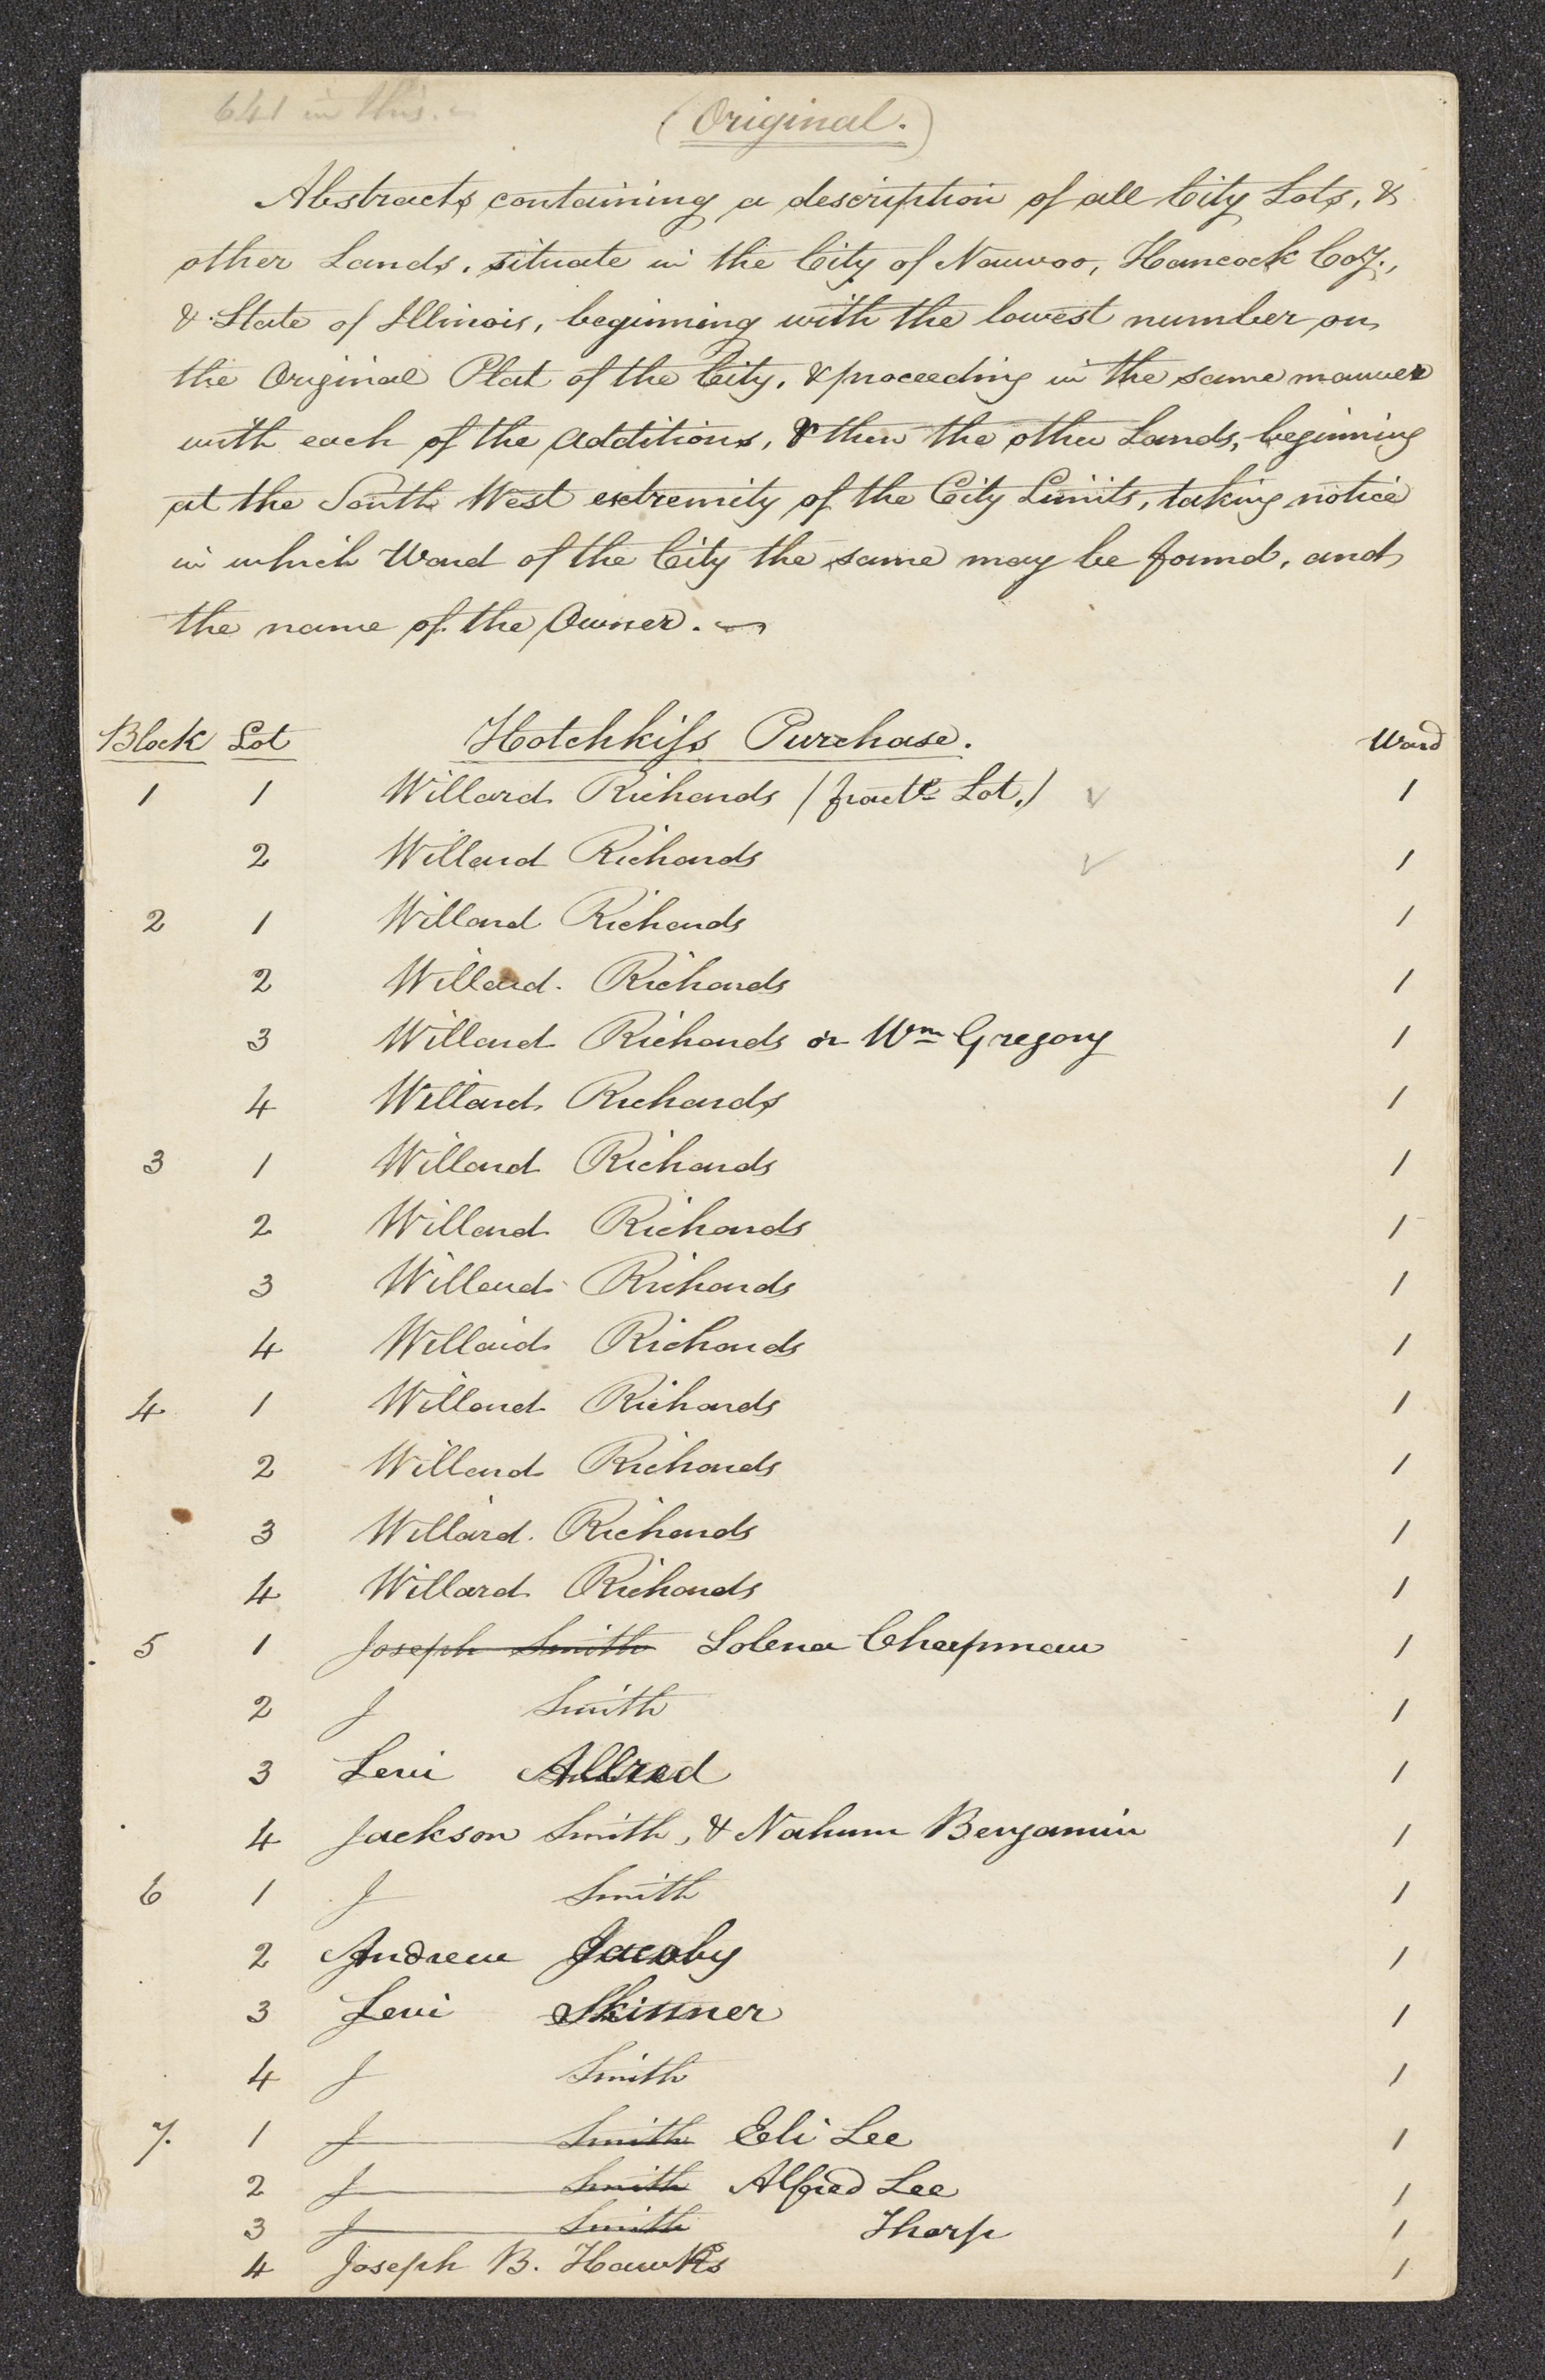 641 in this.
(Original.)
Abstracts containing a description of all City Lots, &
other Lands, situate in the City of Nauvoo, Hancock Coy.,
& State of Illinois, beginning with the lowest number on
the Original Plat of the City, & proceeding in the same manner
with each of the Additions, & then the other Lands, beginning
at the South West extremity of the City Limits, taking notice
in which Ward of the City the same may be found, and
the name of the Owner.
Block Lot Hotchkiss Purchase. Ward
1 1 Willard Richards (fractl. Lot.) ✓ 1
2 Willard Richards ✓ 1
2 1 Willard Richards 1
2 Willard Richards 1
3 Willard Richards or Wm Gregory 1
4 Willard Richards 1
3 1 Willard Richards 1
2 Willard Richards 1
3 Willard Richards 1
4 Willard Richards 1
4 1 Willard Richards 1
2 Willard Richards 1
3 Willard Richards 1
4 Willard Richards 1
5 1 Joseph Smith Lolena Chapman 1
2 J Smith 1
3 Levi Allred 1
4 Jackson Smith, & Nahum Benjamin 1
6 1 J Smith 1
2 Andrew Jacoby 1
3 Levi Skinner 1
4 J Smith 1
7. 1 J Smith Eli Lee 1
2 J Smith Alfred Lee 1
3 J Smith Tharp 1
4 Joseph B. Hawks 1